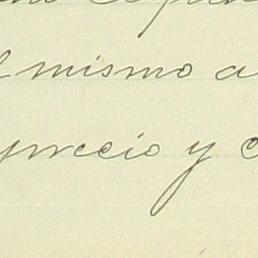 l mismo a
precio y c